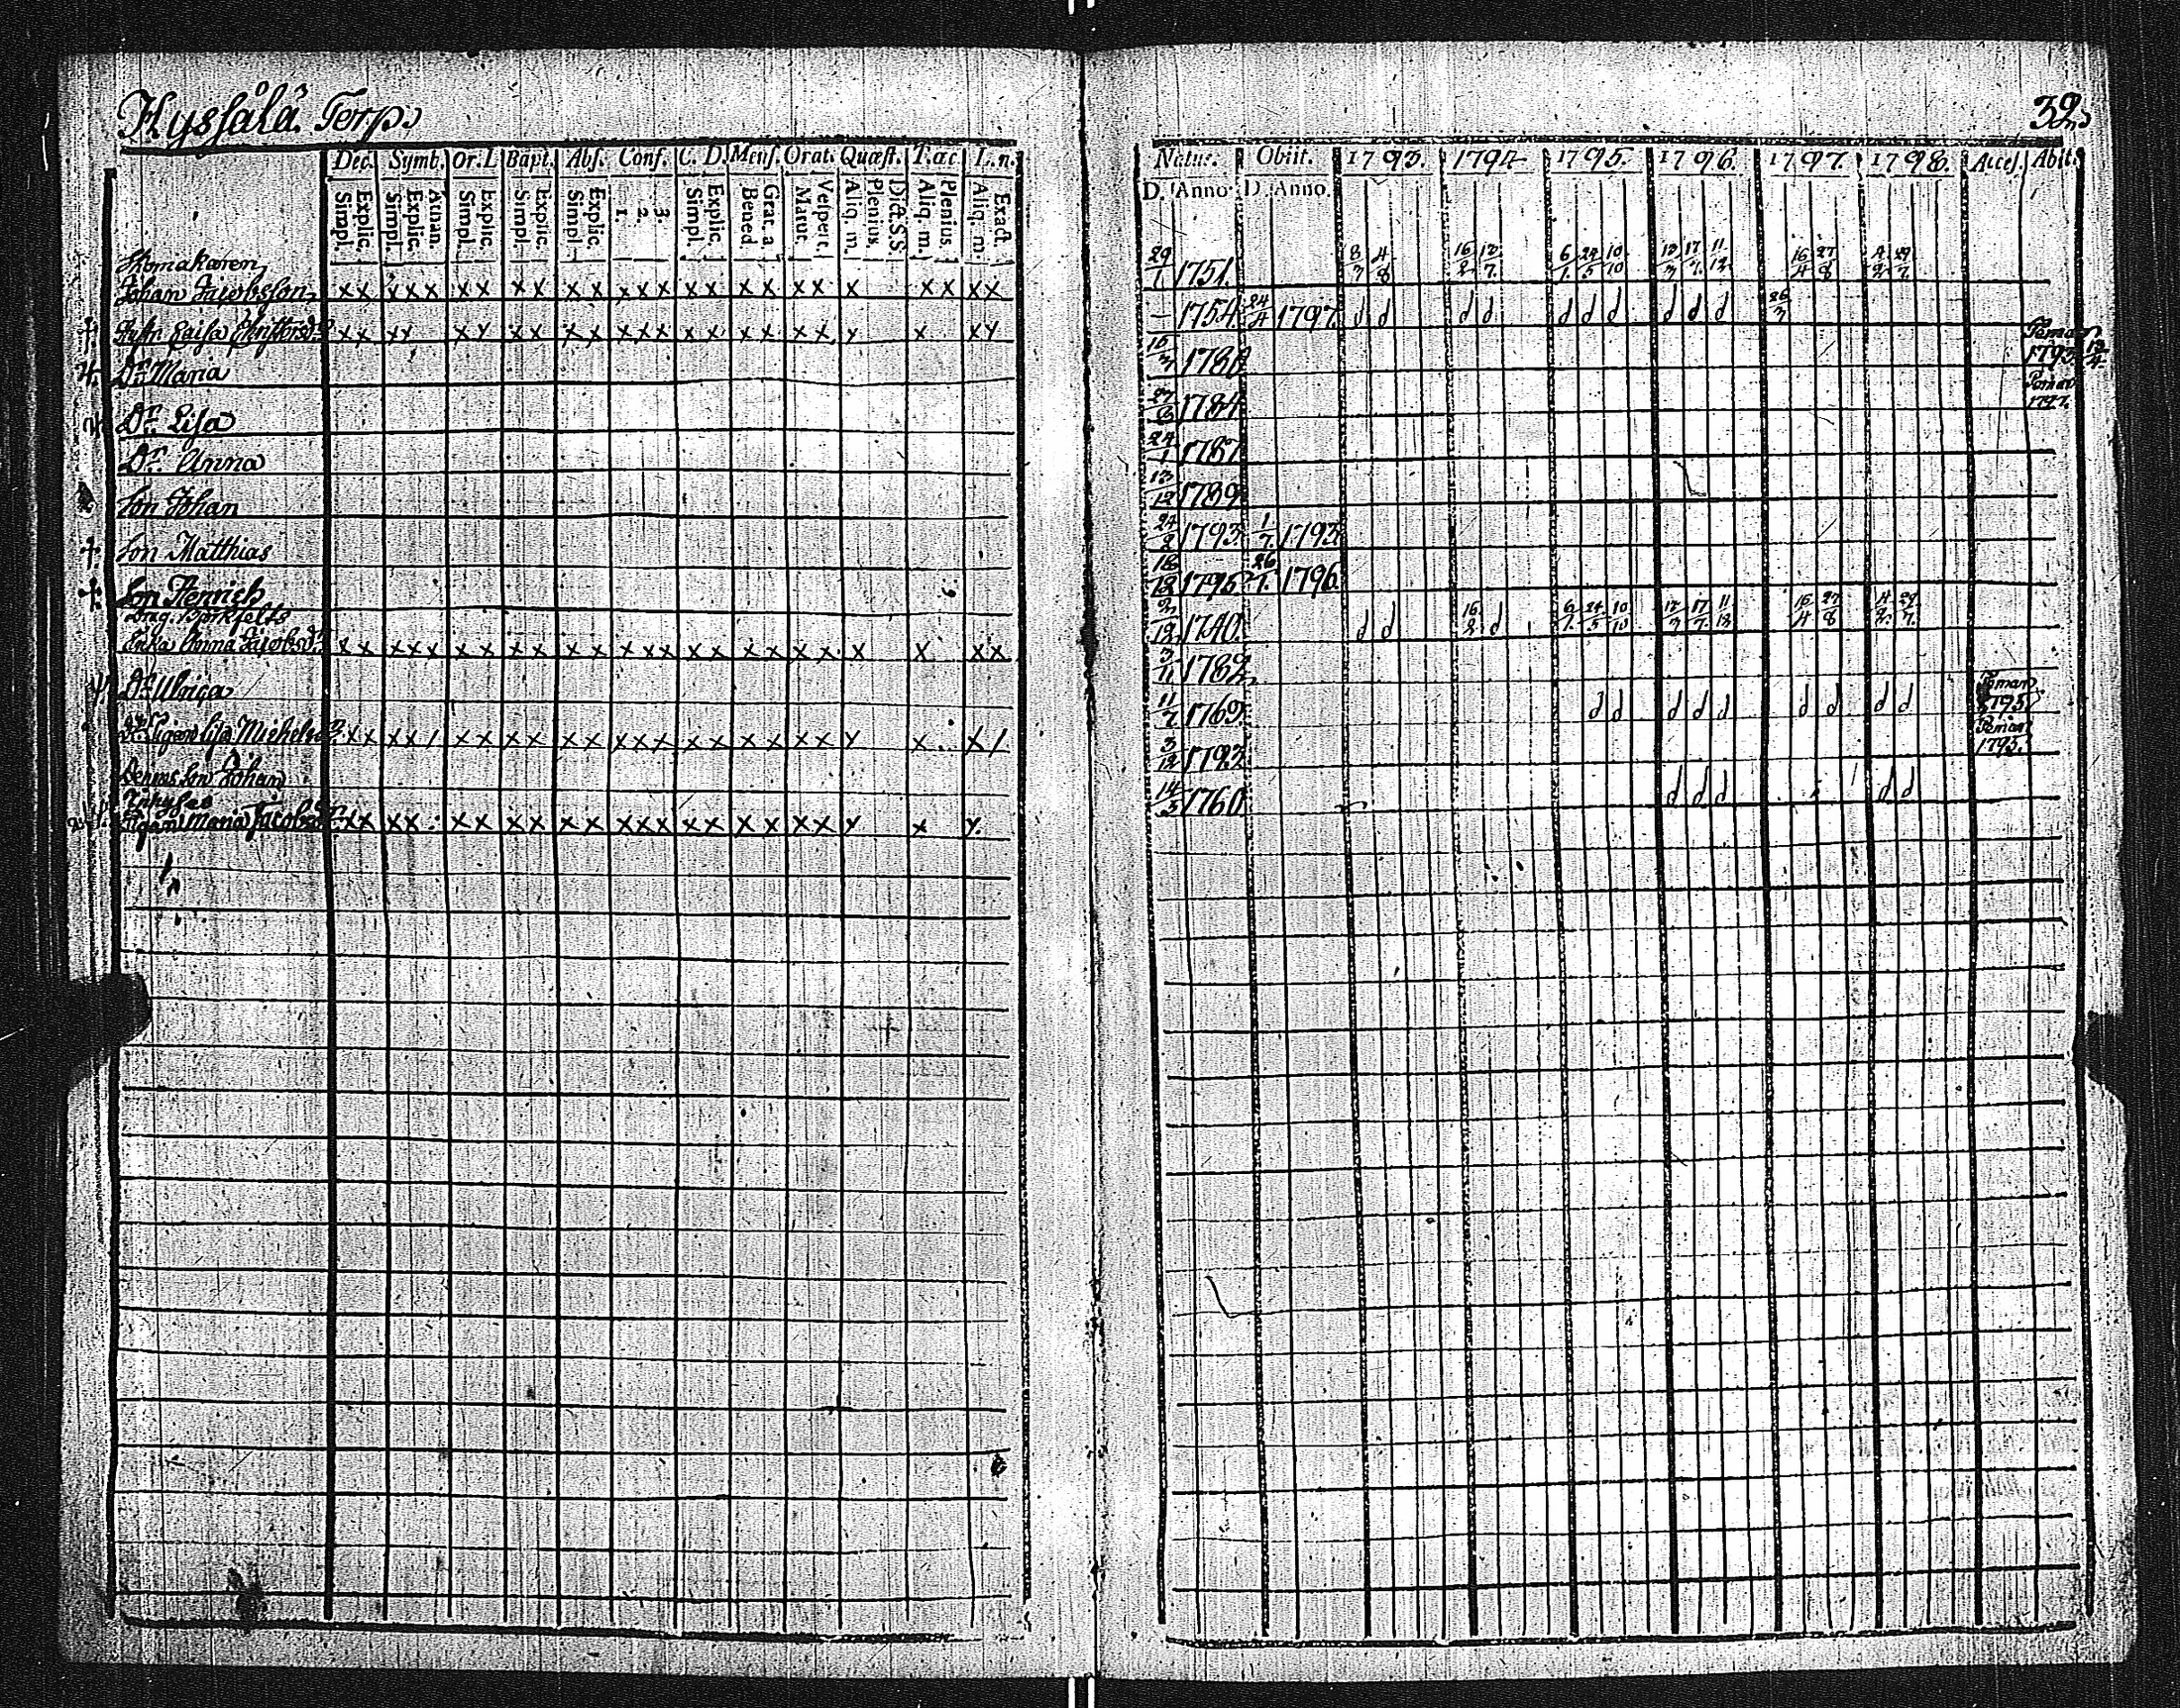 Torp.
32.
Dec. Symb. Or. D. Bapt. Abs. Conf. C. D. Mens. Orat. Quæst. T. œc. L. n.
Simpl. Explic. Simpl. Explic. Athan. Simpl. Explic. Simpl. Explic. Simpl. Explic. 1. 2. 3. Simpl. Explic. Bened. Grat. a. Matut. Vespert. Aliq. m. Plenius. Dict. S.S. Aliq. m. Plenius. Aliq. m. Exact.
Natus. Obiit. 1793. 1794. 1795. 1796. 1797. 1798. Acces. Abit.
D. Anno D. Anno.
Skomakaren
Johan Jacobsson x x x x x x x x x x x x x x x x x x x x x x x x
29/1 1751. 8/7 4/8 16/2 12/7 6/1 24/5 10/10 17/7 11/12 16/4 27/8 4/2 29/7
Hustr. Caisa x x x x x x x x x x x x x x x x x x x x x x
— 1754 24/4 1797 d d d d d d d d d d 26/3
Dr. Maria
16/3 1780
Dr. Lisa
27/6 1784 1797
Dr. Anna
24/1 1787
Son Johan
12/12 1789
Son Matthias
24/2 1793 1/7 1793
Son Henrich
18/12 1795 26/1 1796
Enka Anna Jacobsdr x x x x x x x x x x x x x x x x x x x x x x x x
1740. d d 16/2 d 6/1 24/5 10/10 17/7 11/12 16/4 27/8 4/2 29/7
Dr. Ulrica
3/11 1782
Pigan Lisa Michelsdr x x x x / x x x x x x x x x x x x x x x x x x /
11/7 1769 d d d d d d d d d 1795
Dennes Son Johan
3/12 1793 1795.
Inhyses
Pigan Maria Jacobsdr x x x x x x x x x x x x x x x x x x x x x x
14/5 1760 d d d d d